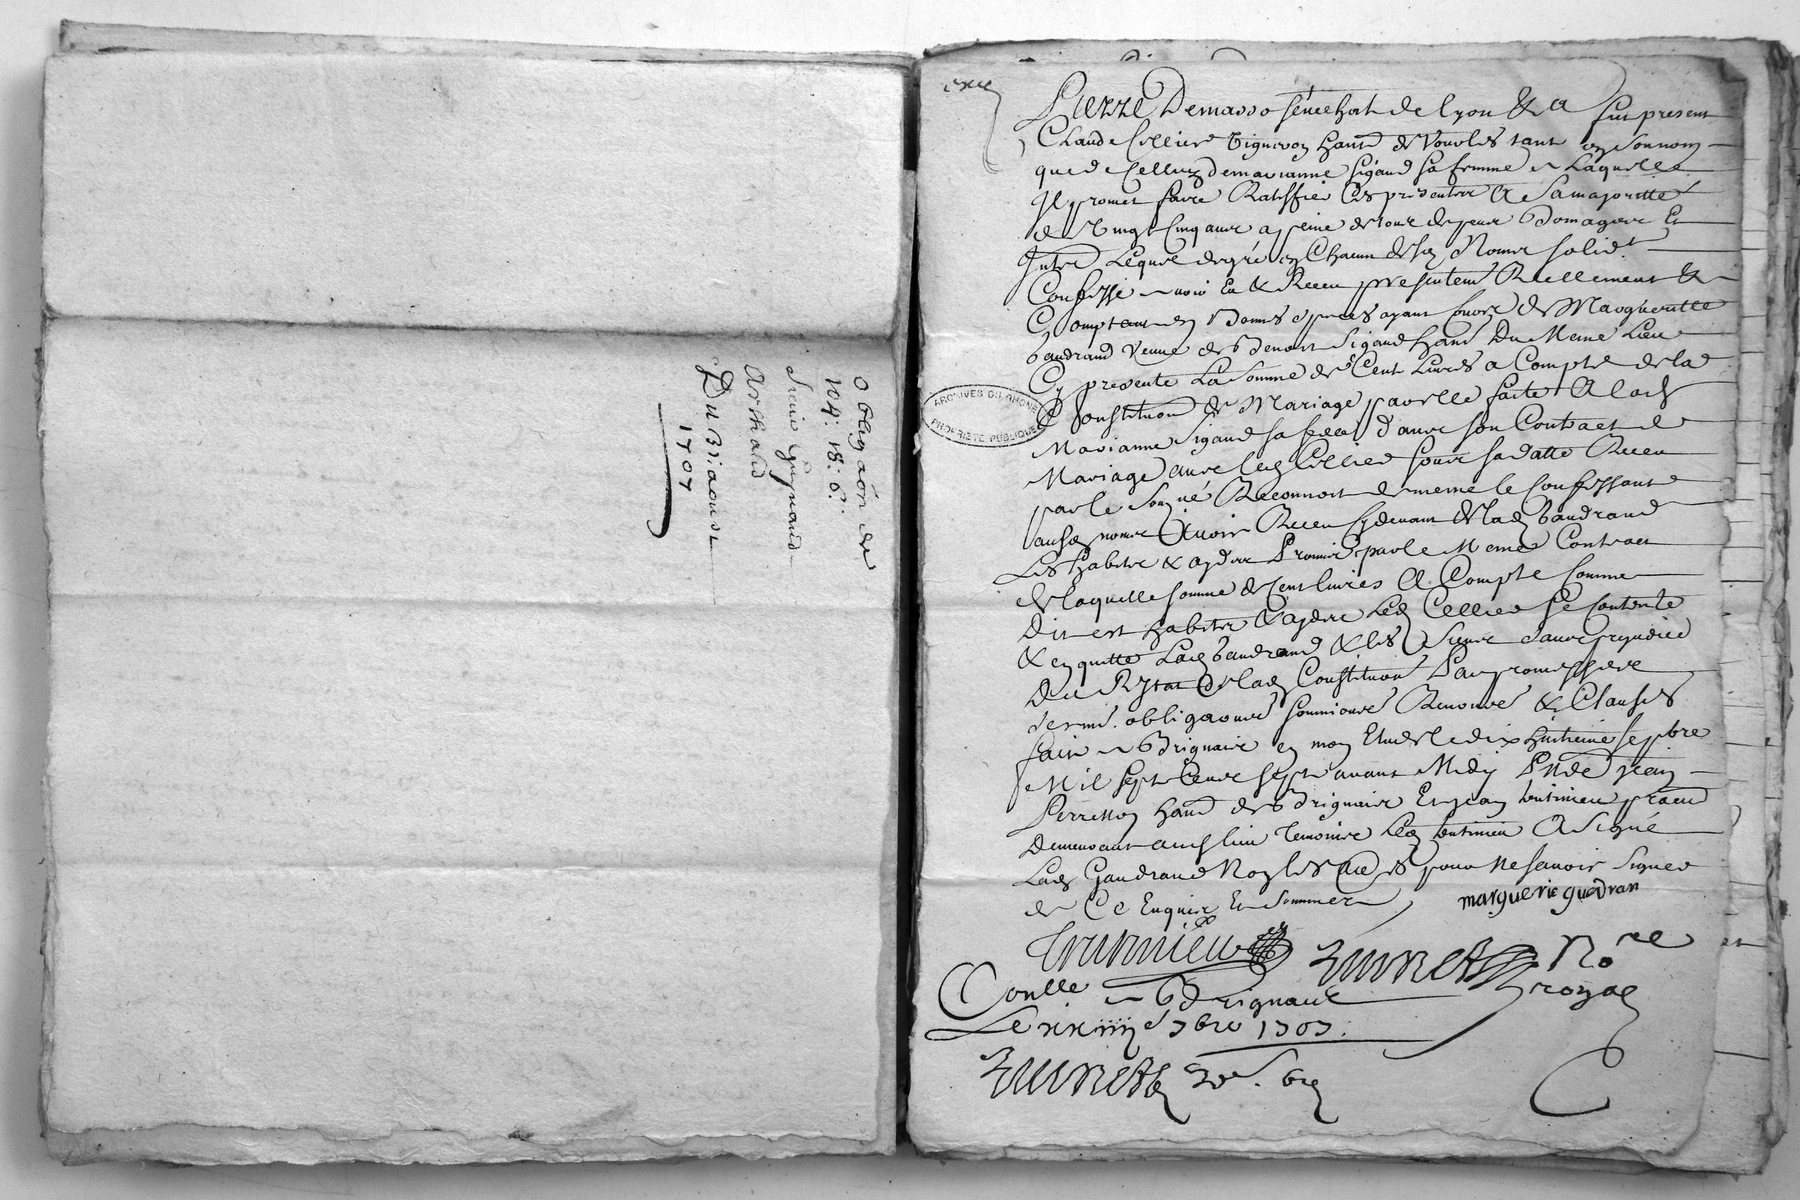 Obligaôn de
104: 18: 6.
Arthaud
Du
1707
ARCHIVES DU RHÔNE
PROPRIÉTÉ PUBLIQUE
exped
Pierre Demasso sénéchal de Lyon & a fut present
Claude Cellier vigneron habt de Vourles tant en son nom
que de celluy de marianne sigaud sa femme a laquelle
Il promet faire Ratiffié ces presentes A sa majoritté
de vingt cinq ans a peine de tous despens Domages Et
Lequel de gré en Chacun desd Noms solidt
Confesse avoir Eu & Receu presentemt Reellement &
Comptant en Bonnes especes ayant cours de Margueritte
Gaudrand veuve de Benoit Sigaud habt Du Meme Lieu
Cy presente La Somme de Cent Livres a Compte de la
Constitution de Mariage par elle faite A lad
Marianne Sigaud sa fille dans son Contract de
Mariage avec led Cellier sous sa datte Receu
par le Soussigné Reconnoit de meme le Confessant
ausd noms Avoir Receu cy devant de lad Gaudrand
Les habits & Promis par le Meme Contract
de laquelle somme de Cent livres A Compte Comme
Dit est habits & Led Cellier se Contente
& en quitte Lad Gaudrand & les Siens sans prejudice
Du Restat de lad Constitution Par promesses
serment obligaons soumions Renons & Clauses
fait a Brignais en mon Etude le dix huitieme septbre
Mil sept Cents sept avant Midy Jean
Perresson habt de Brignais Et Jean
Demeurant aussy Temoins Led A Signé
Lad Gaudrand Non les pour ne scavoir Signer
de Ce Enquis Et Sommez
marguerie guedran
Nore
royal
Conlle a Brignais
Le xxiiii e 7bre 1707.